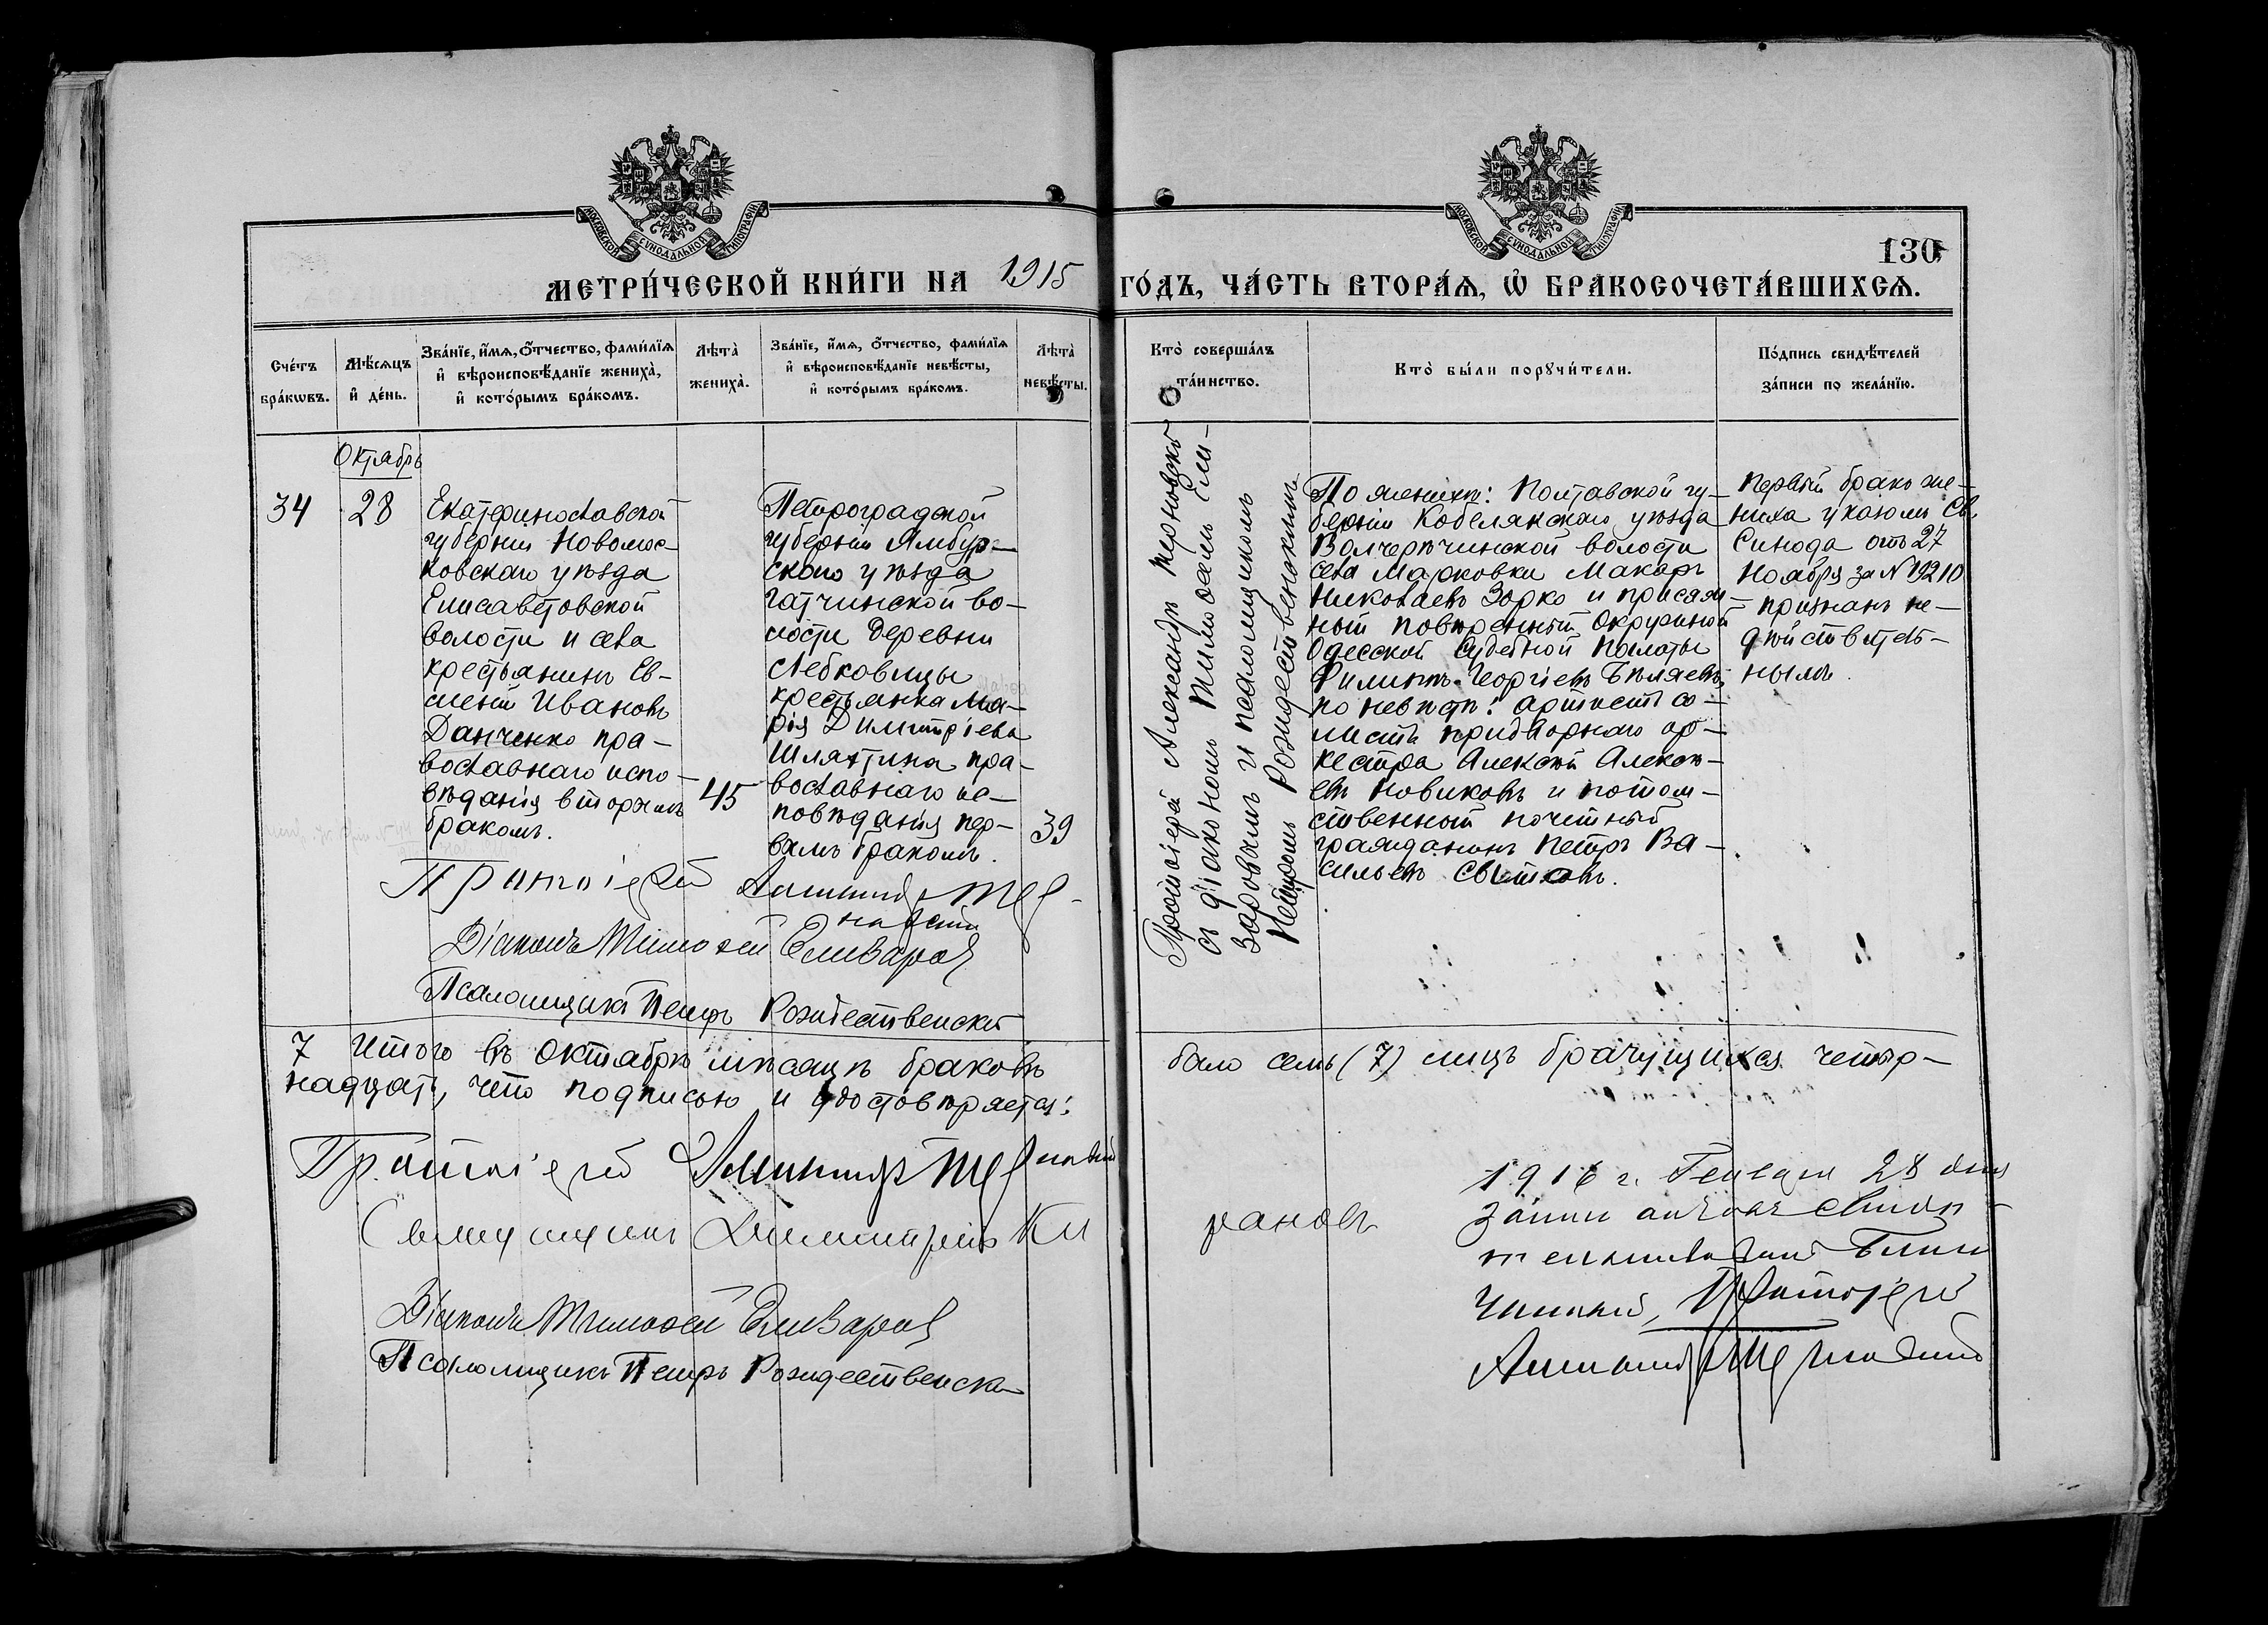 МОСКОВСКОЙ СѴНОДАЛЬНОЙ ТИПОГРАФІИ
МОСКОВСКОЙ СѴНОДАЛЬНОЙ ТИПОГРАФІИ
130
МЕТРИ́ЧЕСКОЙ КНИ́ГИ НА 1915 ГО́ДЪ, ЧА́СТЬ ВТОРА́Ѧ, Ѽ БРАКОСОЧЕТА́ВШИХСѦ.
Сче́тъ
бра́кѡвъ.
Мѣ́сѧцъ
и҆ де́нь.
Зва́нїе, и҆́мѧ, ѻ҆́тчество, фами́лїѧ
и҆ вѣроисповѣ́данїе жениха̀,
и҆ кото́рымъ бра́комъ.
Лѣта̀
жениха̀.
Зва́нїе, и҆́мѧ, ѻ҆́тчество, фами́лїѧ
и҆ вѣроисповѣ́данїе невѣ́сты,
и҆ кото́рымъ бра́комъ.
Лѣта̀
невѣ́сты.
Кто̀ соверша́лъ
та́инство.
Кто̀ бы́ли порꙋчи́тели.
По́дпись свидѣ́телей
за́писи по жела́нїю.
Октябрь
34
28
Екатеринославской
губерніи Новомос-
ковскаго уѣзда
Елисаветовской
волости и села
крестьянинъ Ев-
сеній Ивановъ
Данченко пра-
вославнаго испо-
вѣданія вторымъ
бракомъ.
45
Петроградской
губерніи Ямбур-
скаго уѣзда
Гатчинской во-
лости деревни
Лебковицы
крестьянка Ма-
рія Димитріева
Шляхтина пра-
вославнаго ис-
повѣданія пер-
вымъ бракомъ.
39
Протоіерей Александръ Терновскій
съ діакономъ Тимоѳеемъ Ели-
заровымъ и псаломщикомъ
Петромъ Рождественскимъ
По женихѣ: Полтавской гу-
берніи Кобелякскаго уѣзда
села Марковки Макаръ
Николаевъ Зорко и присяж-
ный повѣренный Окружной
Одесской Судебной Палаты
Филиппъ Георгіевъ Бѣляевъ;
по невѣстѣ: артистъ со-
листъ придворнаго ор-
кестра Алексѣй Алексѣ-
евъ Новиковъ и потом-
ственный почетный
гражданинъ Петръ Ва-
сильевъ
Первый бракъ же-
ниха указомъ Св.
Синода отъ 27
Ноября за № 19210
признанъ не-
дѣйствитель-
нымъ.
Протоіерей Александръ Тер-
новскій
Діаконъ Тимоѳей Елизаровъ
Псаломщикъ Петръ Рождественскій
7 Итого въ Октябрѣ мѣсяцѣ браковъ было семь (7) лицъ брачущихся четыр-
надцать, что подписью и удостовѣряется:
Протоіерей Александръ Терновскій
Священникъ Димитрій
Діаконъ Тимоѳей Елизаровъ
Псаломщикъ Петръ Рождественскій
1916 г. Генваря 28 дня
Протоіерей
Александръ Терновскій